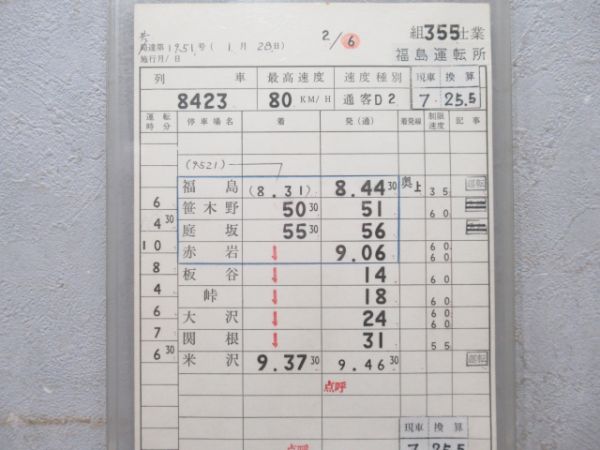 局達第1751号( 1月 28日)
施行月/日
2/⑥
組355仕業
福島運転所
列車 最高速度 速度種別 現車 換算
8423 80 KM/H 通客D2 7. 25.5
運転時分 停車場名 着 発(通) 着発線 制限速度 記事
(9521)
福島 (8.31) 8.44 30 奥上 35 運転
6 笹木野 50 30 51 60
4 30 庭坂 55 30 56
10 赤岩 ↓ 9.06 60
8 板谷 ↓ 14 60 60
4 峠 ↓ 18 60
6 大沢 ↓ 24 60 60
7 関根 ↓ 31 55
6 30 米沢 9.37 30 9.46 30 運転
点呼
現車 換算
点呼 7 25.5